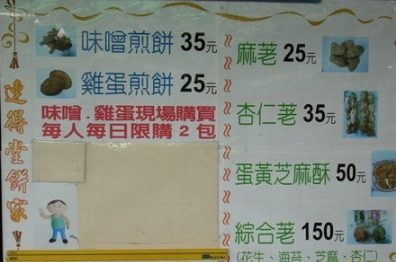 味噌煎餅 35元
雞蛋煎餅 25元
味噌．雞蛋現場購買
每人每日限購2包
連得堂餅家
麻荖 25元
杏仁荖 35元
蛋黃芝麻酥 50元
綜合荖 150元
(花生、海苔、芝麻、杏仁)